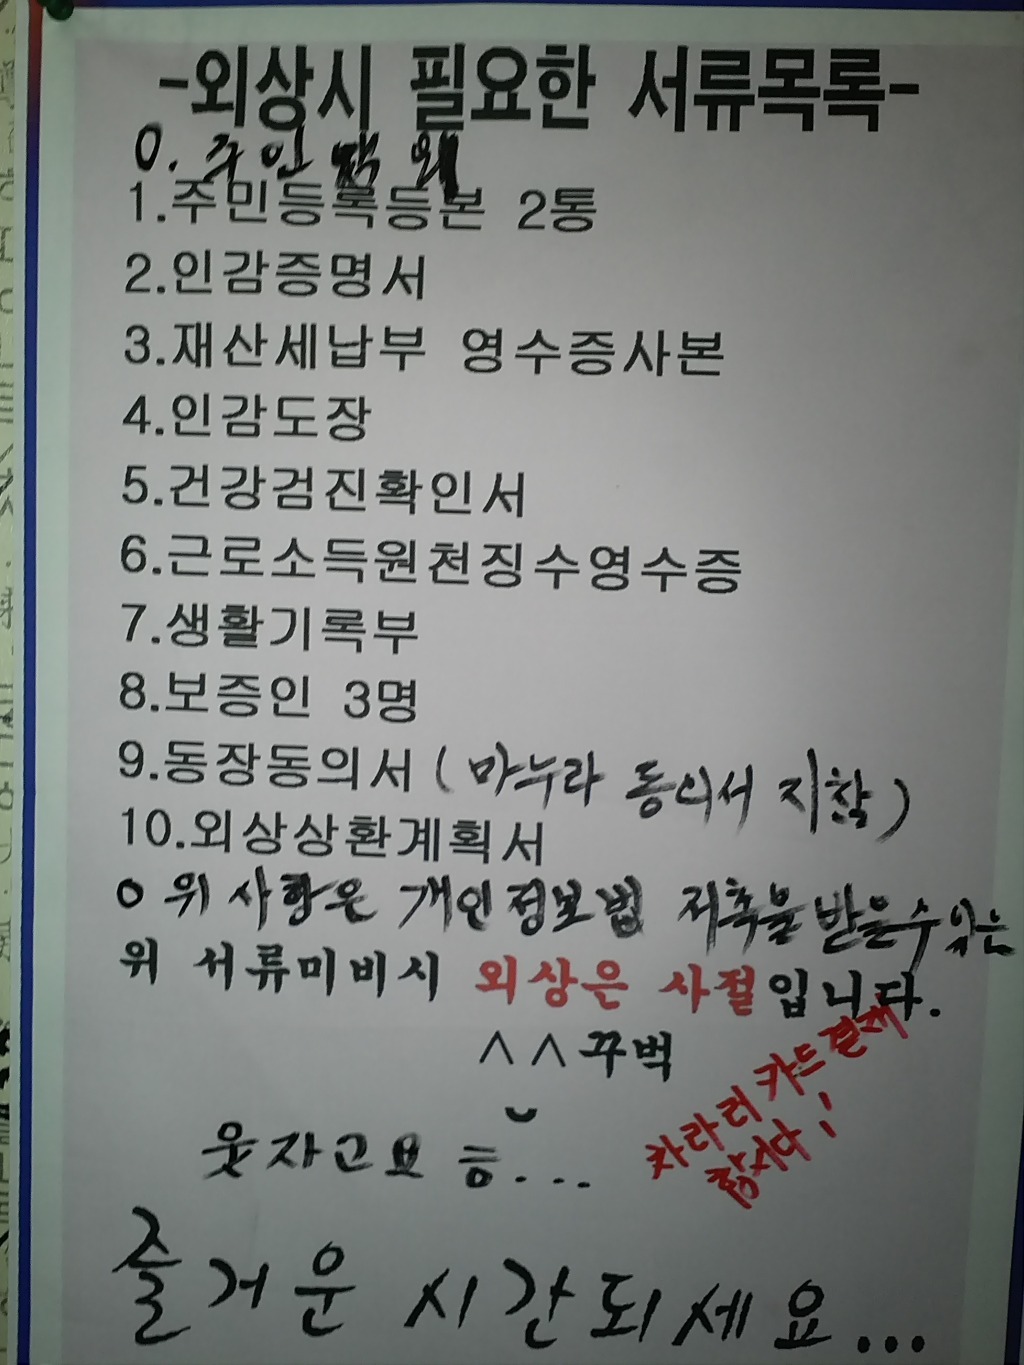 -외상시 필요한 서류목록-
0. 주인
1.주민등록등본 2통
2.인감증명서
3.재산세납부 영수증사본
4.인감도장
5.건강검진확인서
6.근로소득원천징수영수증
7.생활기록부
8.보증인 3명
9.동장동의서 (마누라 동의서 지참)
10.외상상환계획서
0 위 사항은 개인정보법 저촉을 받을수 있는
위 서류미비시 외상은 사절입니다.
^^꾸벅
웃자고요 응...
차라리 카드결재
합시다!
즐거운 시간되세요...